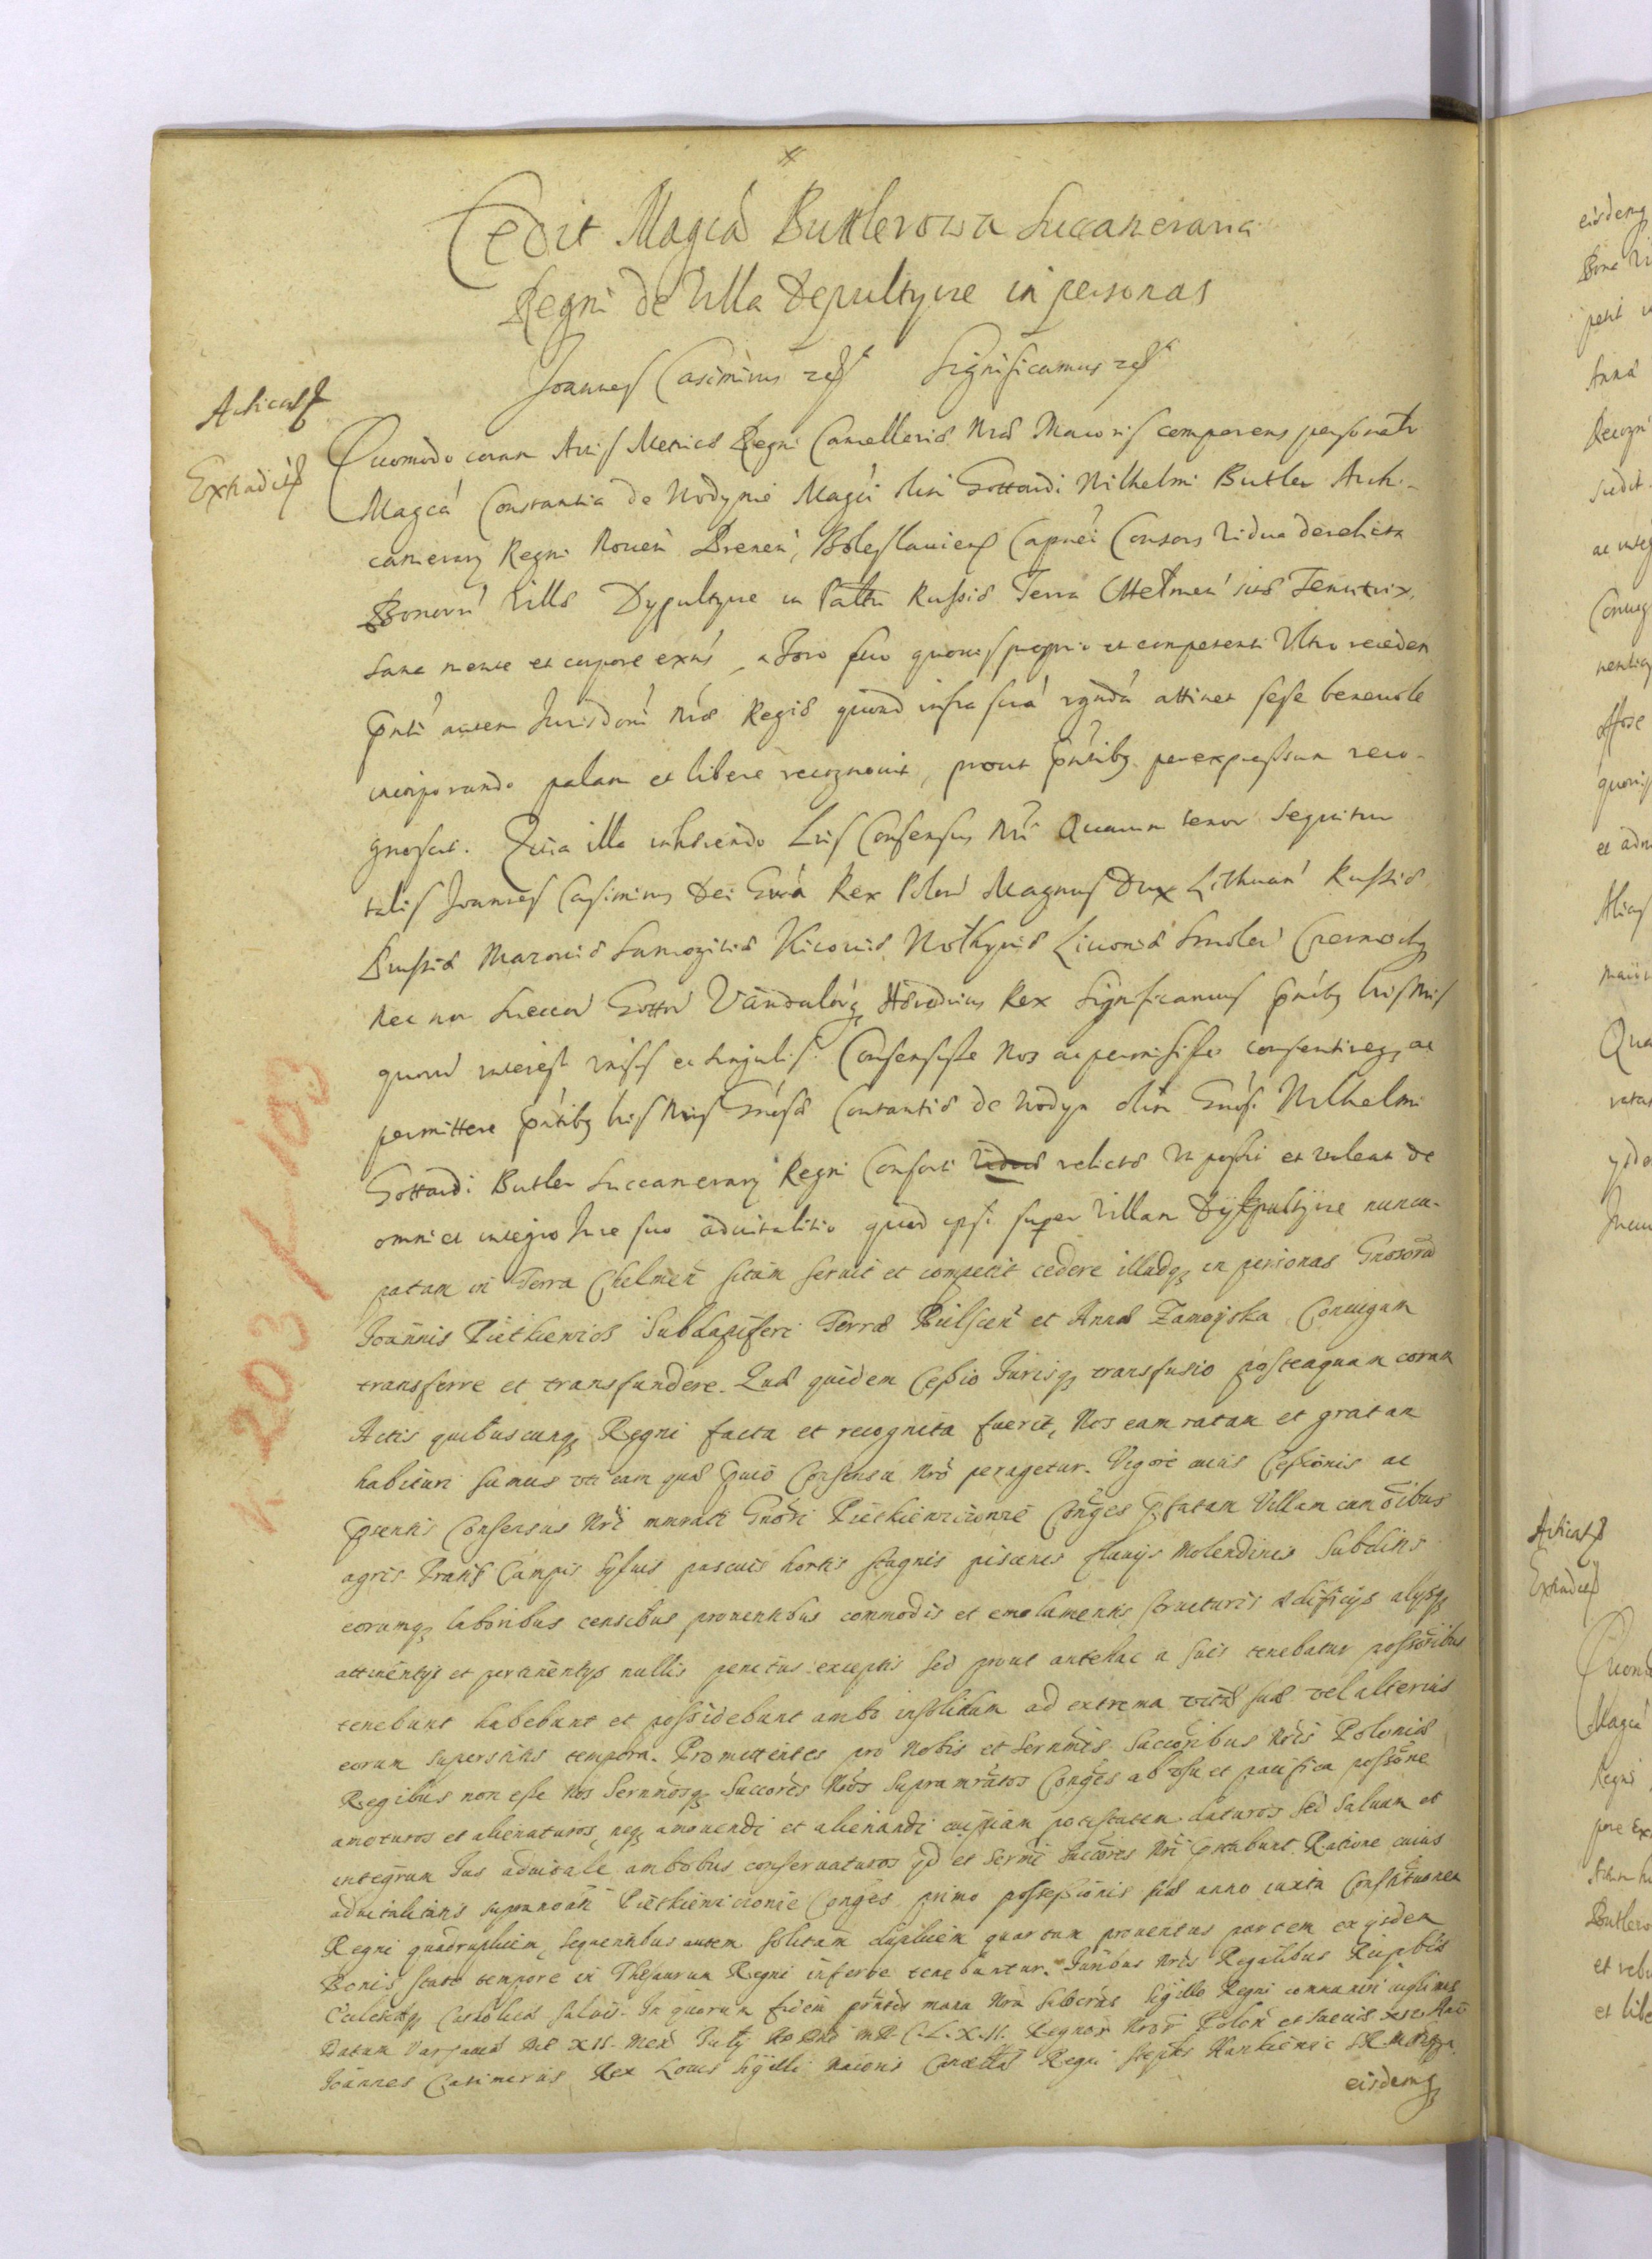 Cedit Magca Buttlerowa Succameraria
Regni de Villa Depultyce in personas
Joannes Casimirus etc Significamus etc
Quomodo coram Actis Metrices Regni Cancellariæ Nræ Maioris comparens personalr
Magca Constantia de Wodynie Magci olim Gottardi Wilhelmi Butler Archi-
camerarij Regni Boleslauien Capnei Consors vidua derelicta
Bonorū Villæ Dypultyce in Paltu Russiæ Terra Chelmen sitæ Tenutrix,
sana mente et corpore exns, a Foro suo quouis proprio et competenti Ultro receden
pnti autem Jurisdoni Nræ Regiæ quoad infra scra attinet sese beneuole
incorporando palam et libere recognouit, prout pntibq per expressum reco-
gnoscit. Quia illa inhærendo Lris Consensus Nri Quarum tenor sequitur
talis Joannes Casimirus Dei Grā Rex Polon Magnus Dux Lithuan Russiæ
Prussiæ Mazouiæ Samogitiæ Kiiouiæ Wolhyniæ Liuoniæ Smolen Czernochq
nec non Suecor Gottor Vandalorq Hæreditarius Rex Significamus pntibq Lris Nris
quorū interest vnisis et singulis. Consensisse Nos ac permisisse consentireq ac
permittere pntibq Lris Nris Gnosæ Constantiæ de Wodyn olim Gnosi Wilhelmi
Gottardi Butler Succamerarij Regni Consorti viduæ relictæ Ut possit et valeat de
omni et integro Jure suo aduitalitio quod ipsi super Villam Dypultyce nuncu-
patam in Terra Chelmen sitam seruit et competit cedere illudq in personas Gnosorū
Joannis Pietkiewicz Subdapiferi Terræ Bielscen et Annæ Zamoyska Coniugum
transferre et transfundere. Quæ quidem Cessio Jurisq transfusio posteaquam coram
Actis quibuscunq Regni facta et recognita fuerit, Nos eam ratam et gratam
habituri sumus vti eam quæ Consensu Nro peragetur. Vigore cuius Cessionis ac
pntis Consensus Nri Gnosi Pietkiewiczowie Conges pfatam Villam cum oibus
agris Pratis Campis Syluis pascuis hortis stagnis piscinis fluuijs Molendinis Subditis
eorumq laboribus censibus prouentibus commodis et emolumentis structuris ædificijs alijsq
attinentijs et pertinentijs nullis penitus exceptis sed prout antehac a suis tenebatur possoribus
tenebunt habebunt et possidebunt ambo insolidum ad extrema vitæ suæ vel alterius
eorum superstitis tempora. Promittentes pro Nobis et Sernmis Successoribus Nris Poloniæ
Regibus non esse Nos Sernmosq Succores Nros Supramratos Conges ab vsu et pacifica possone
amoturos et alienaturos, neq amouendi et alienandi cuipiam potestatem daturos sed saluum et
integrum Jus aduitale ambobus conseruaturos qd et Sermi Succores Nri pstabunt. Ratione cuius
aduitalitatis Pietkiewiczowie Conges primo possessionis suæ anno iuxta Constitutionem
Regni quadruplicem, sequentibus autem solitam duplicem quartam prouentus partem ex ijsdem
Bonis stato tempore in Thesaurum Regni inferre tenebuntur. Juribus Nris Regalibus Reipblicæ
Ecclesiæq Catholicæ saluis. In quorum fidem pntes manu Nrā Subscras Sigillo Regni communiri iussimus
Datum Varsauiæ die XII. Mens Julij Ao Dni MDCLXII. Regnor Nror Polon et Sueciæ
Joannes Casimirus Rex Locus sigilli Maioris Cancellariæ Regni
eisdemq
Acticat
Extradit